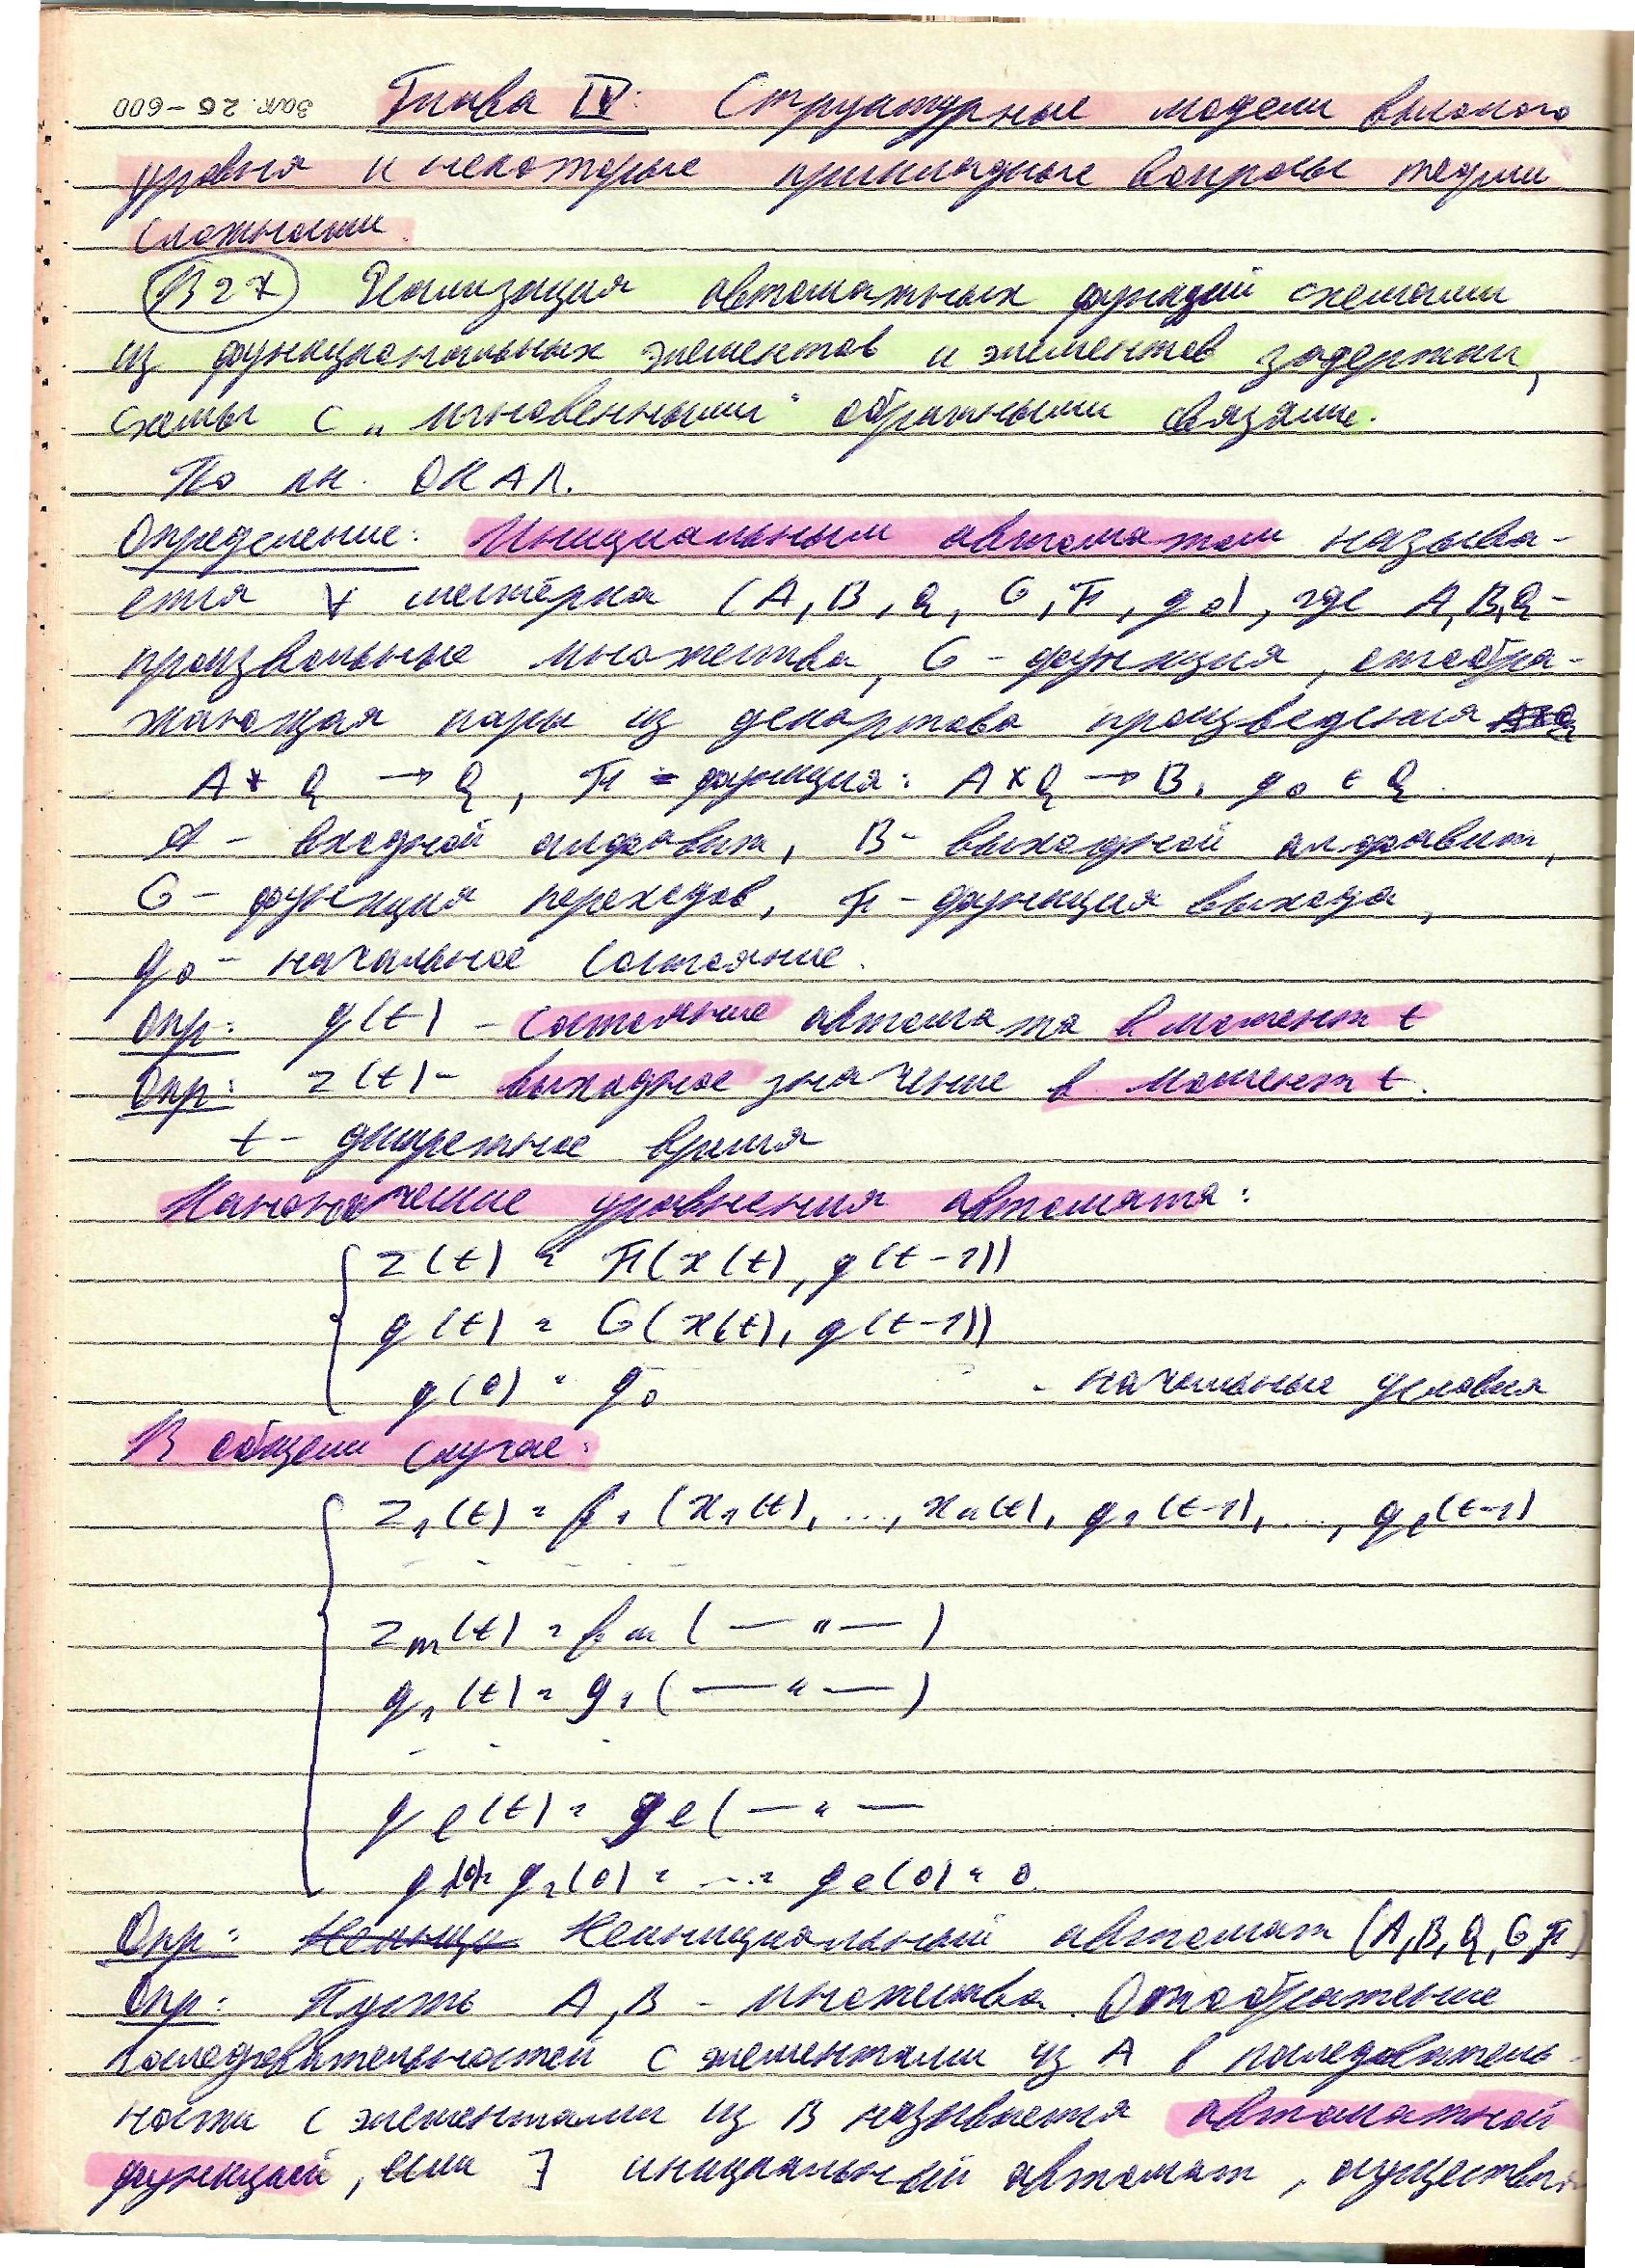 Зак. 25-600
Глава IV: Структурные модели высокого
уровня и некоторые прикладные вопросы теории
сложности.
В27 Реализация автоматных функций схемами
из функциональных элементов и элементов задержки,
схемы с „мгновенными" обратными связями.
По лк. ОКАЛ.
Определение: Инициальным автоматом называ-
ется ∀ шестёрка (A, B, Q, G, F, q₀), где A, B, Q -
произвольные множества, G - функция, отобра-
жающая пары из декартова произведения
A × Q → Q, F - функция: A × Q → B, q₀ ∈ Q.
A - входной алфавит, B - выходной алфавит,
G - функция переходов, F - функция выхода,
q₀ - начальное состояние.
Опр: q(t) - состояние автомата в момент t
Опр: z(t) - выходное значение в момент t.
t - дискретное время
Канонические уравнения автомата:
z(t) = F(x(t), q(t-1))
q(t) = G(x(t), q(t-1))
q(0) = q₀ - начальные условия
В общем случае:
z₁(t) = f₁(x₁(t), ..., xₙ(t), q₁(t-1), ..., qₗ(t-1)
- - - - -
zₘ(t) = fₘ(—"—)
q₁(t) = g₁(—"—)
- - -
qₗ(t) = gₗ(—"—
q₁(0) = q₂(0) = ... = qₗ(0) = 0.
Опр: Неинициальный автомат (A, B, Q, G, F)
Опр: Пусть A, B - множества. Отображение
последовательностей с элементами из A в последователь-
ности с элементами из B называется автоматной
функцией, если ∃ инициальный автомат, осуществля-